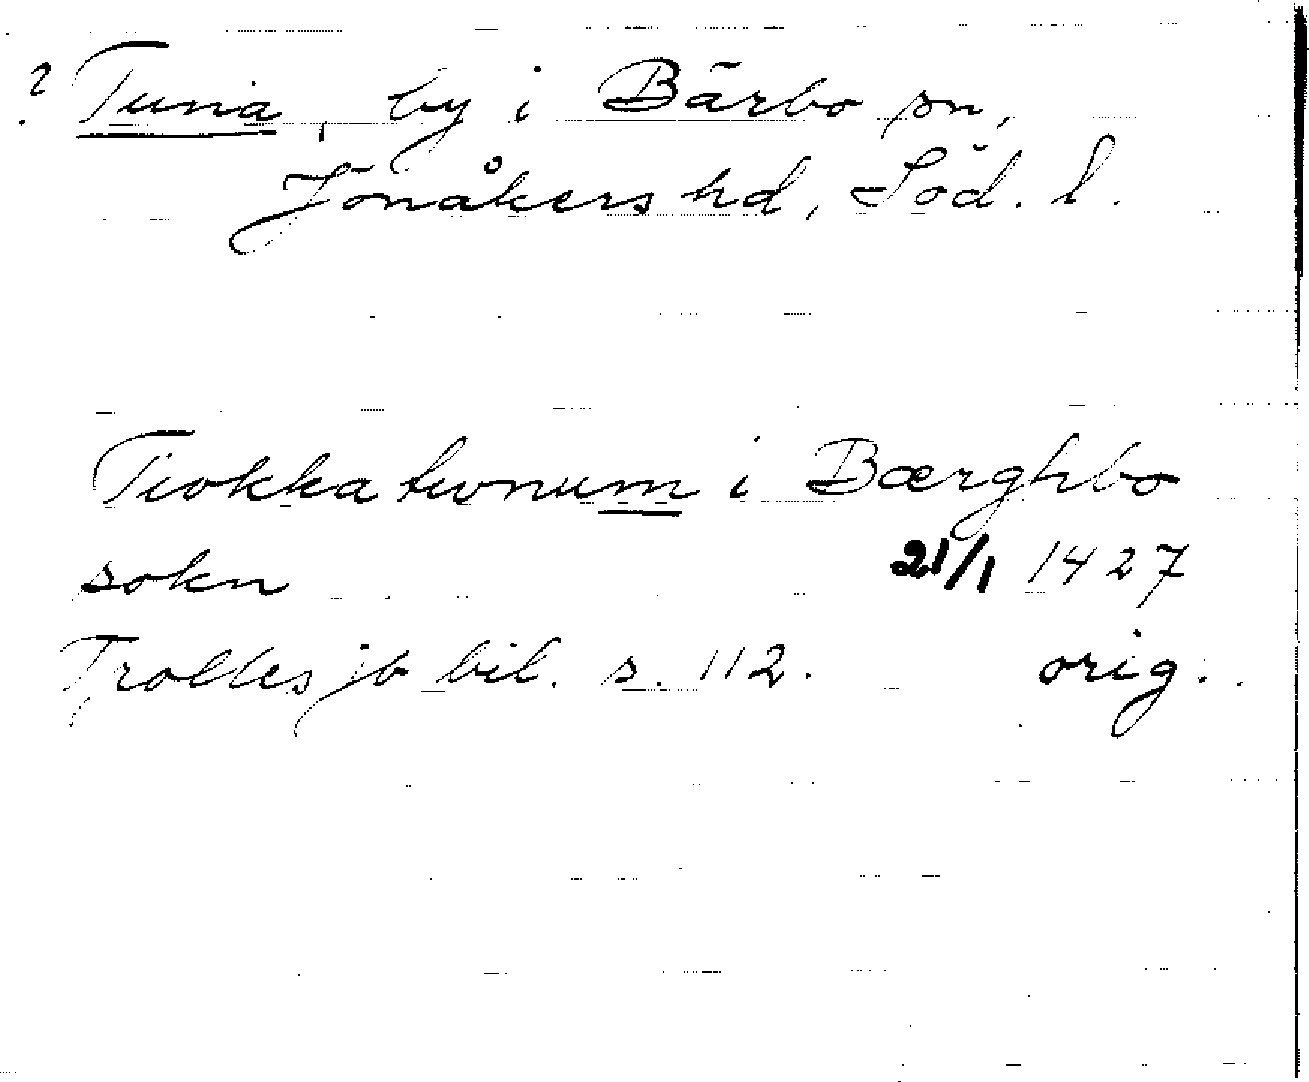 ? Tuna, by i Bärbo sn,
Jönåkers hd, Söd. l.
Tiokka twnum i Bærghbo
sokn 21/1 1427
Trolles jb bil. s. 112. orig.